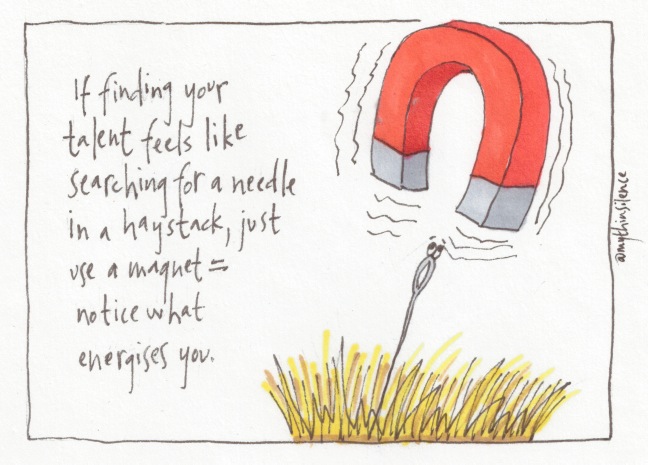 If finding your
talent feels like
searching for a needle
in a haystack, just
use a magnet =
notice what
energises you.
@mythinsilence